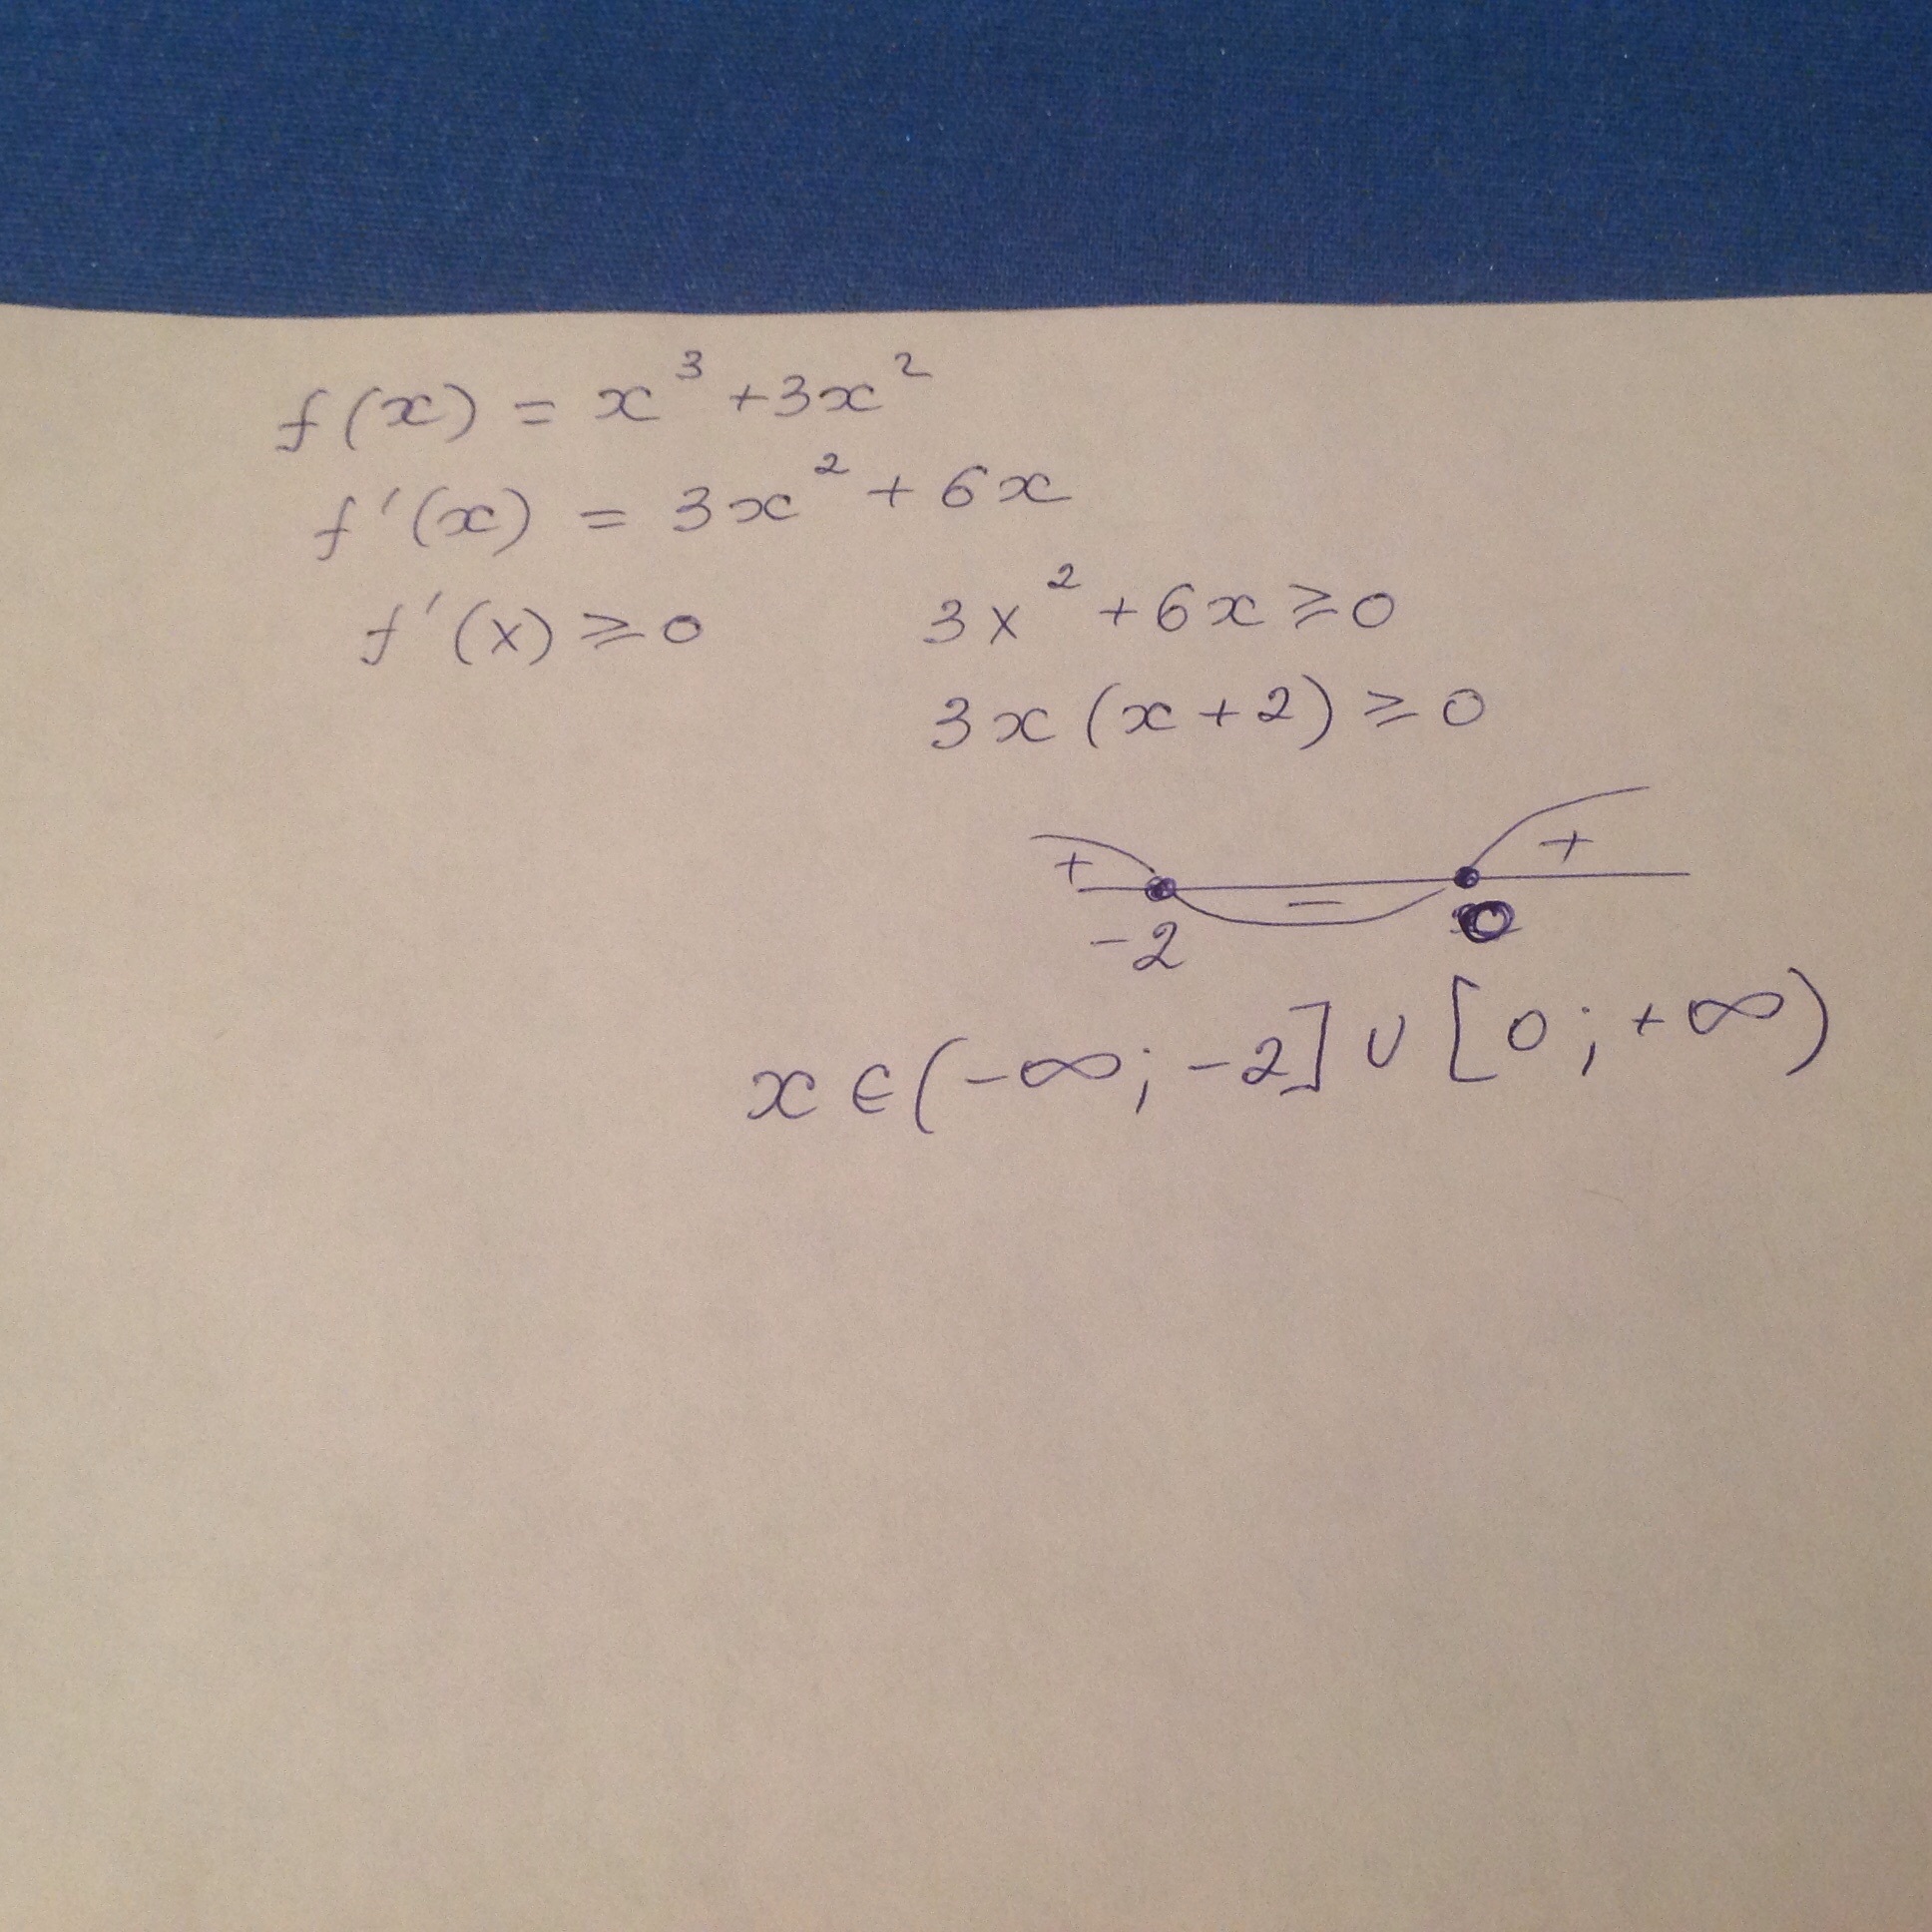 f(x) = x³ + 3x²
f'(x) = 3x² + 6x
f'(x) ⩾ 0 3x² + 6x ⩾ 0
3x(x+2) ⩾ 0
+ − +
-2 0
x ∈ (-∞; -2] ∪ [0; +∞)